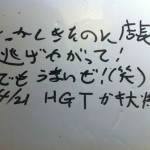 しかしきたのに店長
逃げやがって!
でもうまいぜ!(笑)
4/21 HGT ガキ大